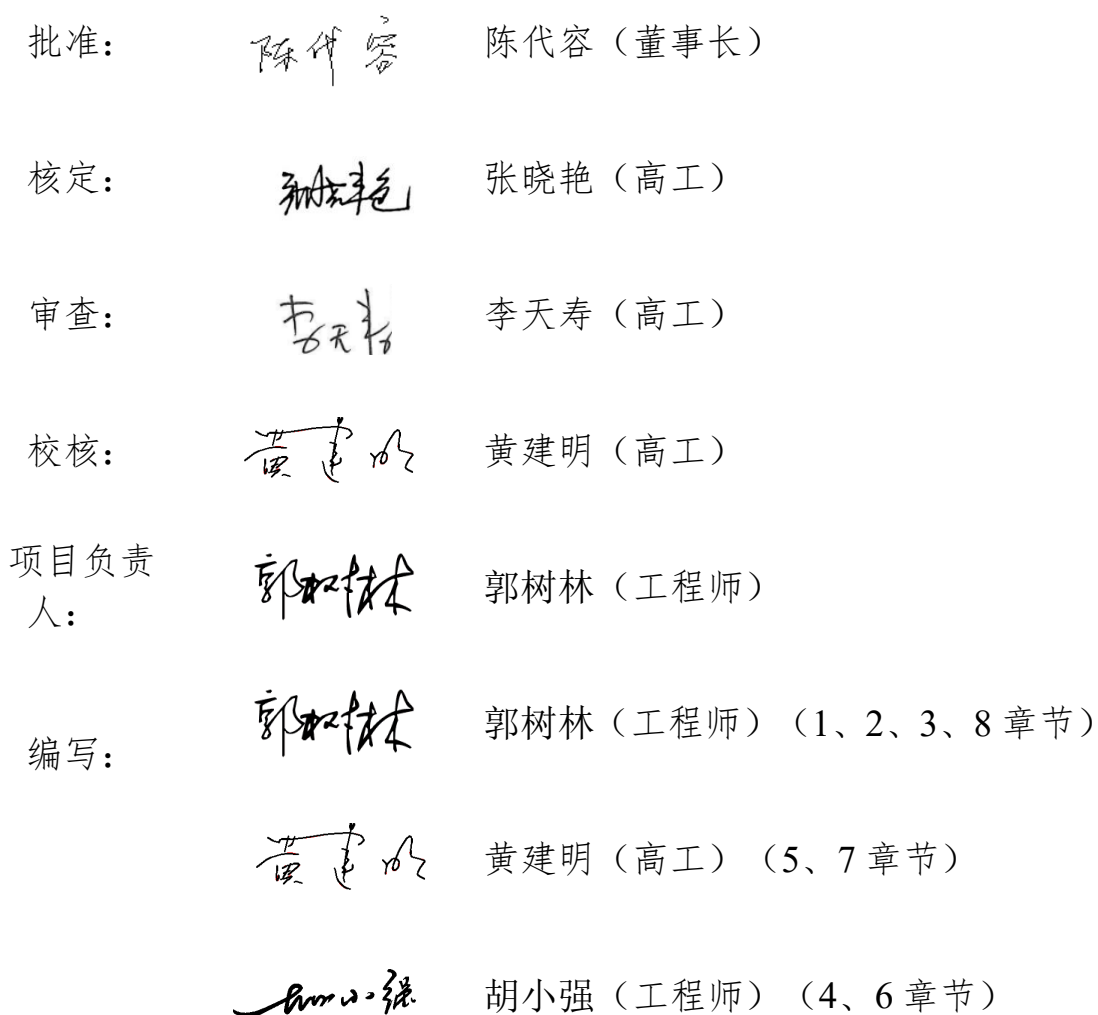 批准： 陈代容 陈代容（董事长）
核定： 张晓艳（高工）
审查： 李天寿 李天寿（高工）
校核： 黄建明 黄建明（高工）
项目负责
人： 郭树林 郭树林（工程师）
编写： 郭树林 郭树林（工程师）（1、2、3、8 章节）
黄建明 黄建明（高工）（5、7 章节）
胡小强 胡小强（工程师）（4、6 章节）